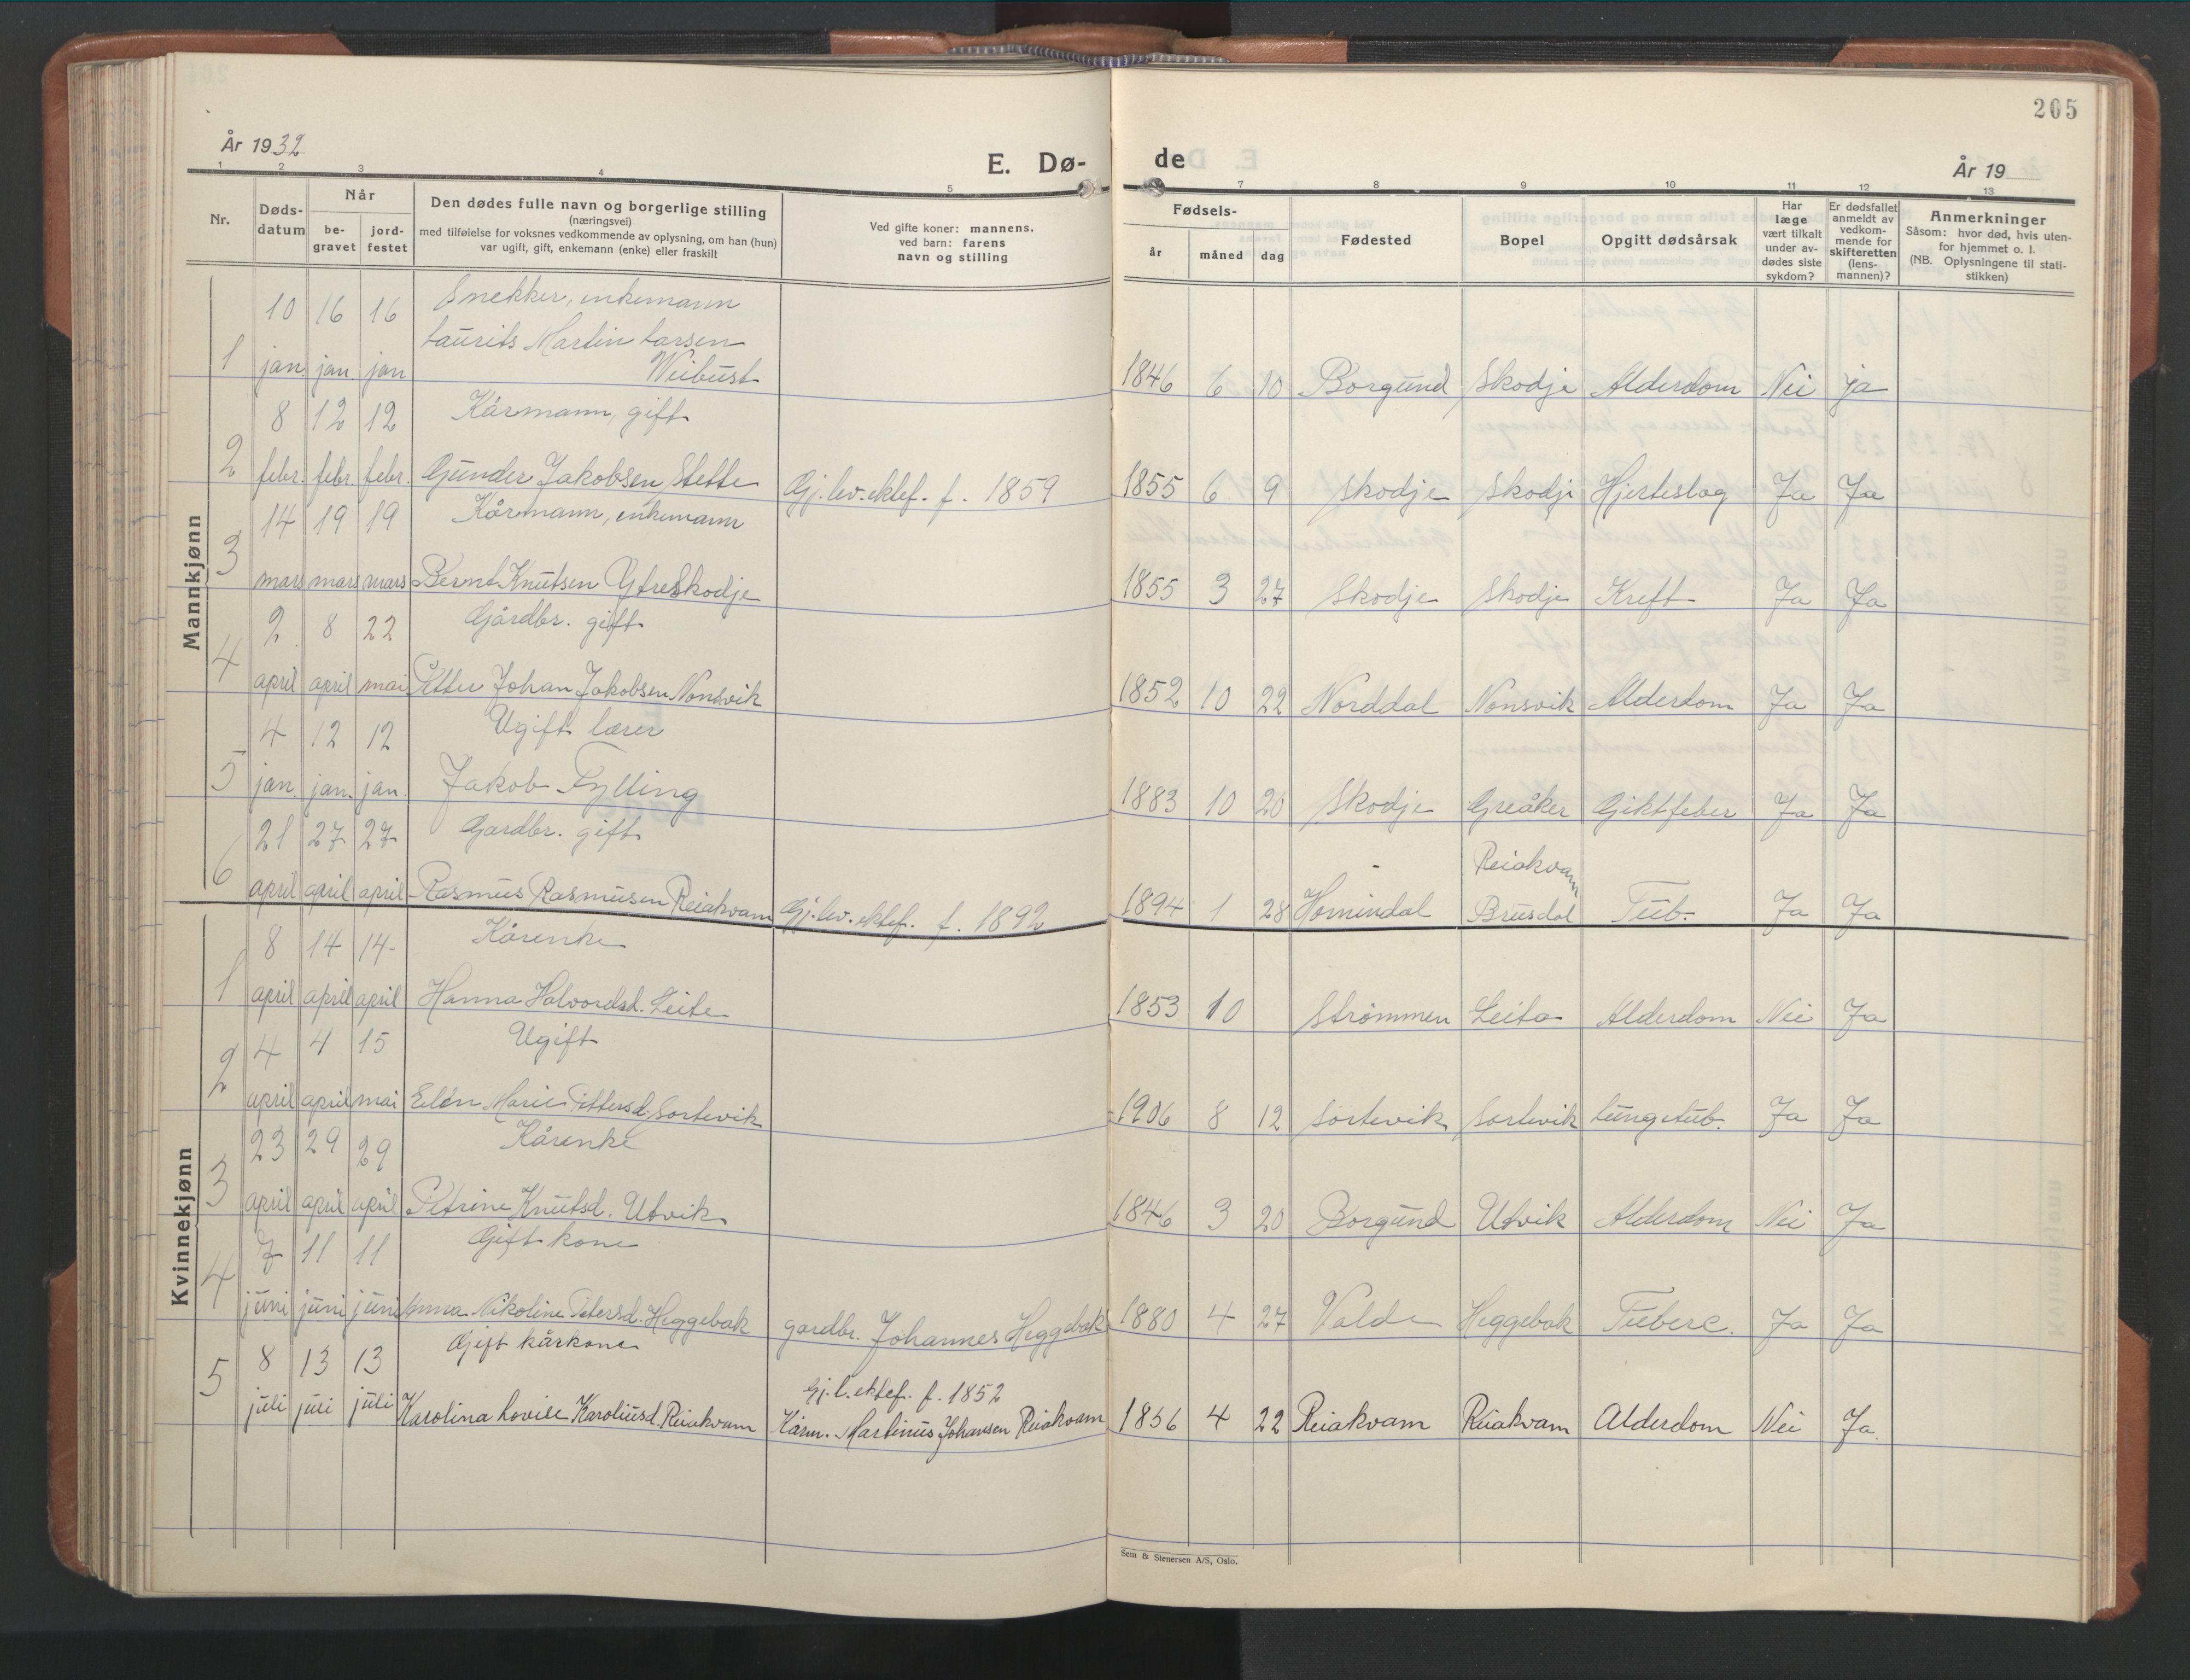 205
År 1932
E. Dø-
de
År 19
1 2 3 4 5 7 8 9 10 11 12 13
Nr.
Døds-
datum
Når
be-
gravet
jord-
festet
Den dødes fulle navn og borgerlige stilling
(næringsvei)
med tilføielse for voksnes vedkommende av oplysning, om han (hun)
var ugift, gift, enkemann (enke) eller fraskilt
Ved gifte koner: mannens,
ved barn: farens
navn og stilling
Fødsels-
år
måned
dag
Fødested
Bopel
Opgitt dødsårsak
Har
læge
vært tilkalt
under av-
dødes siste
sykdom?
Er dødsfallet
anmeldt av
vedkom-
mende for
skifteretten
(lens-
mannen)?
Anmerkninger
Såsom: hvor død, hvis uten-
for hjemmet o. l.
(NB. Oplysningene til stati-
stikken)
Mannkjønn
10 16 16 Snekker, enkemann
Laurits Martin Larsen
1 jan. jan. jan Weibust 1846 6 10 Borgund Skodje Alderdom Nei ja
8 12 12 Kårmann, gift
2 febr. febr. febr. Gunder Jakobsen Stette Gj. lev. ektef. f. 1859 1855 6 9 Skodje Skodje Hjerteslag Ja Ja
14 19 19 Kårmann, enkemann
3 mars mars mars Bernt Knutsen Ytreskodje 1855 3 27 Skodje Skodje Kreft Ja Ja
2 8 22 Gårdbr. gift
4 april april mai Petter Johan Jakobsen Nonsvik 1852 10 22 Norddal Nonsvik Alderdom Ja Ja
4 12 12 Ugift lærer
5 jan. jan. jan. Jakob Fylling 1883 10 20 Skodje Greåker Giktfeber Ja Ja
21 27 27 Gardbr. gift Reiakvam
6 april april april Rasmus Rasmusen Reiakvam Gj. lev. ektef. f. 1892 1894 1 28 Hornindal Brusdal Tub. Ja Ja
Kvinnekjønn
8 14 14 Kårenke
1 april april april Hanna Halvordsd. Leite 1853 10 Strømmen Leita Alderdom Nei Ja
4 4 15 Ugift
2 april april mai Elén Marie Pettersd. Sortevik 1906 8 12 Sortevik Sortevik Lungetub. Ja Ja
23 29 29 Kårenke
3 april april april Petrine Knutsd. Utvik 1846 3 20 Borgund Utvik Alderdom Nei Ja
7 11 11 Gift kone
4 juni juni juni Anna Nikoline Petersd. Heggebak gardbr. Johannes Heggebak 1880 4 27 Valde Heggebak Tuberc. Ja Ja
8 13 13 Gift kårkone Gj. l. ektef. f. 1852
5 juli juli juli Karolina Lovise Karoliusd. Reiakvam Kårm. Martinus Johansen Reiakvam 1856 4 22 Reiakvam Reiakvam Alderdom Nei Ja.
Sem & Stenersen A/S, Oslo.